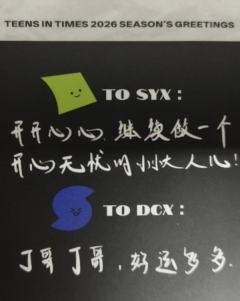 TEENS IN TIMES 2026 SEASON'S GREETINGS
TO SYX:
开开心心,继续做一个
开心无忧的小小大人儿!
TO DCX:
丁哥丁哥,好运多多.